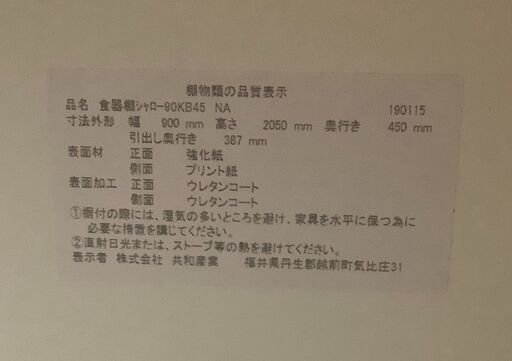 棚物類の品質表示
品名 食器棚シャロー90KB45 NA 190115
寸法外形 幅 900 mm 高さ 2050 mm 奥行き 450 mm
引出し奥行き 387 mm
表面材 正面 強化紙
側面 プリント紙
表面加工 正面 ウレタンコート
側面 ウレタンコート
①据付の際には、湿気の多いところを避け、家具を水平に保つ為に
必要な措置を講じてください。
②直射日光または、ストーブ等の熱を避けてください。
表示者 株式会社 共和産業 福井県丹生郡越前町気比庄31